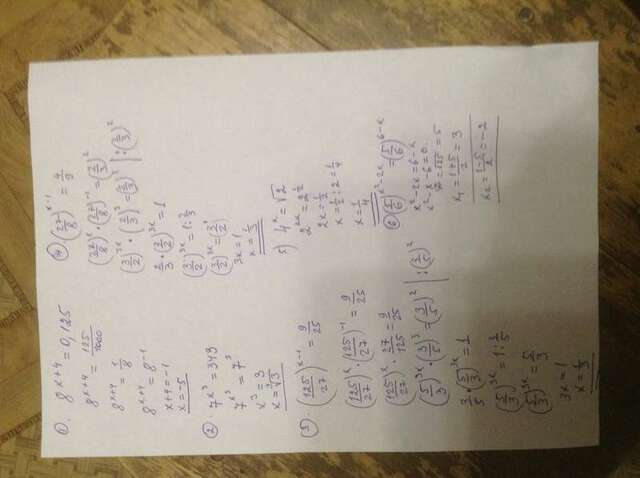 1). 8^(x+4) = 0,125
8^(x+4) = 125/1000
8^(x+4) = 1/8
8^(x+4) = 8^(-1)
x+4 = -1
x = -5
2). 7^(x^3) = 343
7^(x^3) = 7^3
x^3 = 3
x = ∛3
3). (125/27)^(x-1) = 9/25
(125/27)^x · (125/27)^(-1) = 9/25
(125/27)^x · 27/125 = 9/25
(5/3)^(3x) · (3/5)^3 = (3/5)^2 | : (3/5)^2
3/5 · (5/3)^(3x) = 1
(5/3)^(3x) = 1 : 3/5
(5/3)^(3x) = 5/3
3x = 1
x = 1/3
4) (27/8)^(x-1) = 4/9
(27/8)^x · (27/8)^(-1) = (2/3)^2
(3/2)^(3x) · (2/3)^3 = (2/3)^2 | : (2/3)^2
2/3 · (3/2)^(3x) = 1
(3/2)^(3x) = 1 : 2/3
(3/2)^(3x) = (3/2)^1
3x = 1
x = 1/3
5) 4^x = √2
2^(2x) = 2^(1/2)
2x = 1/2
x = 1/2 : 2 = 1/4
x = 1/4
6) (5/6)^(x^2-2x) = (5/6)^(6-x)
x^2 - 2x = 6 - x
x^2 - x - 6 = 0.
= √25 = 5
x₁ = (1+5)/2 = 3
x₂ = (1-5)/2 = -2